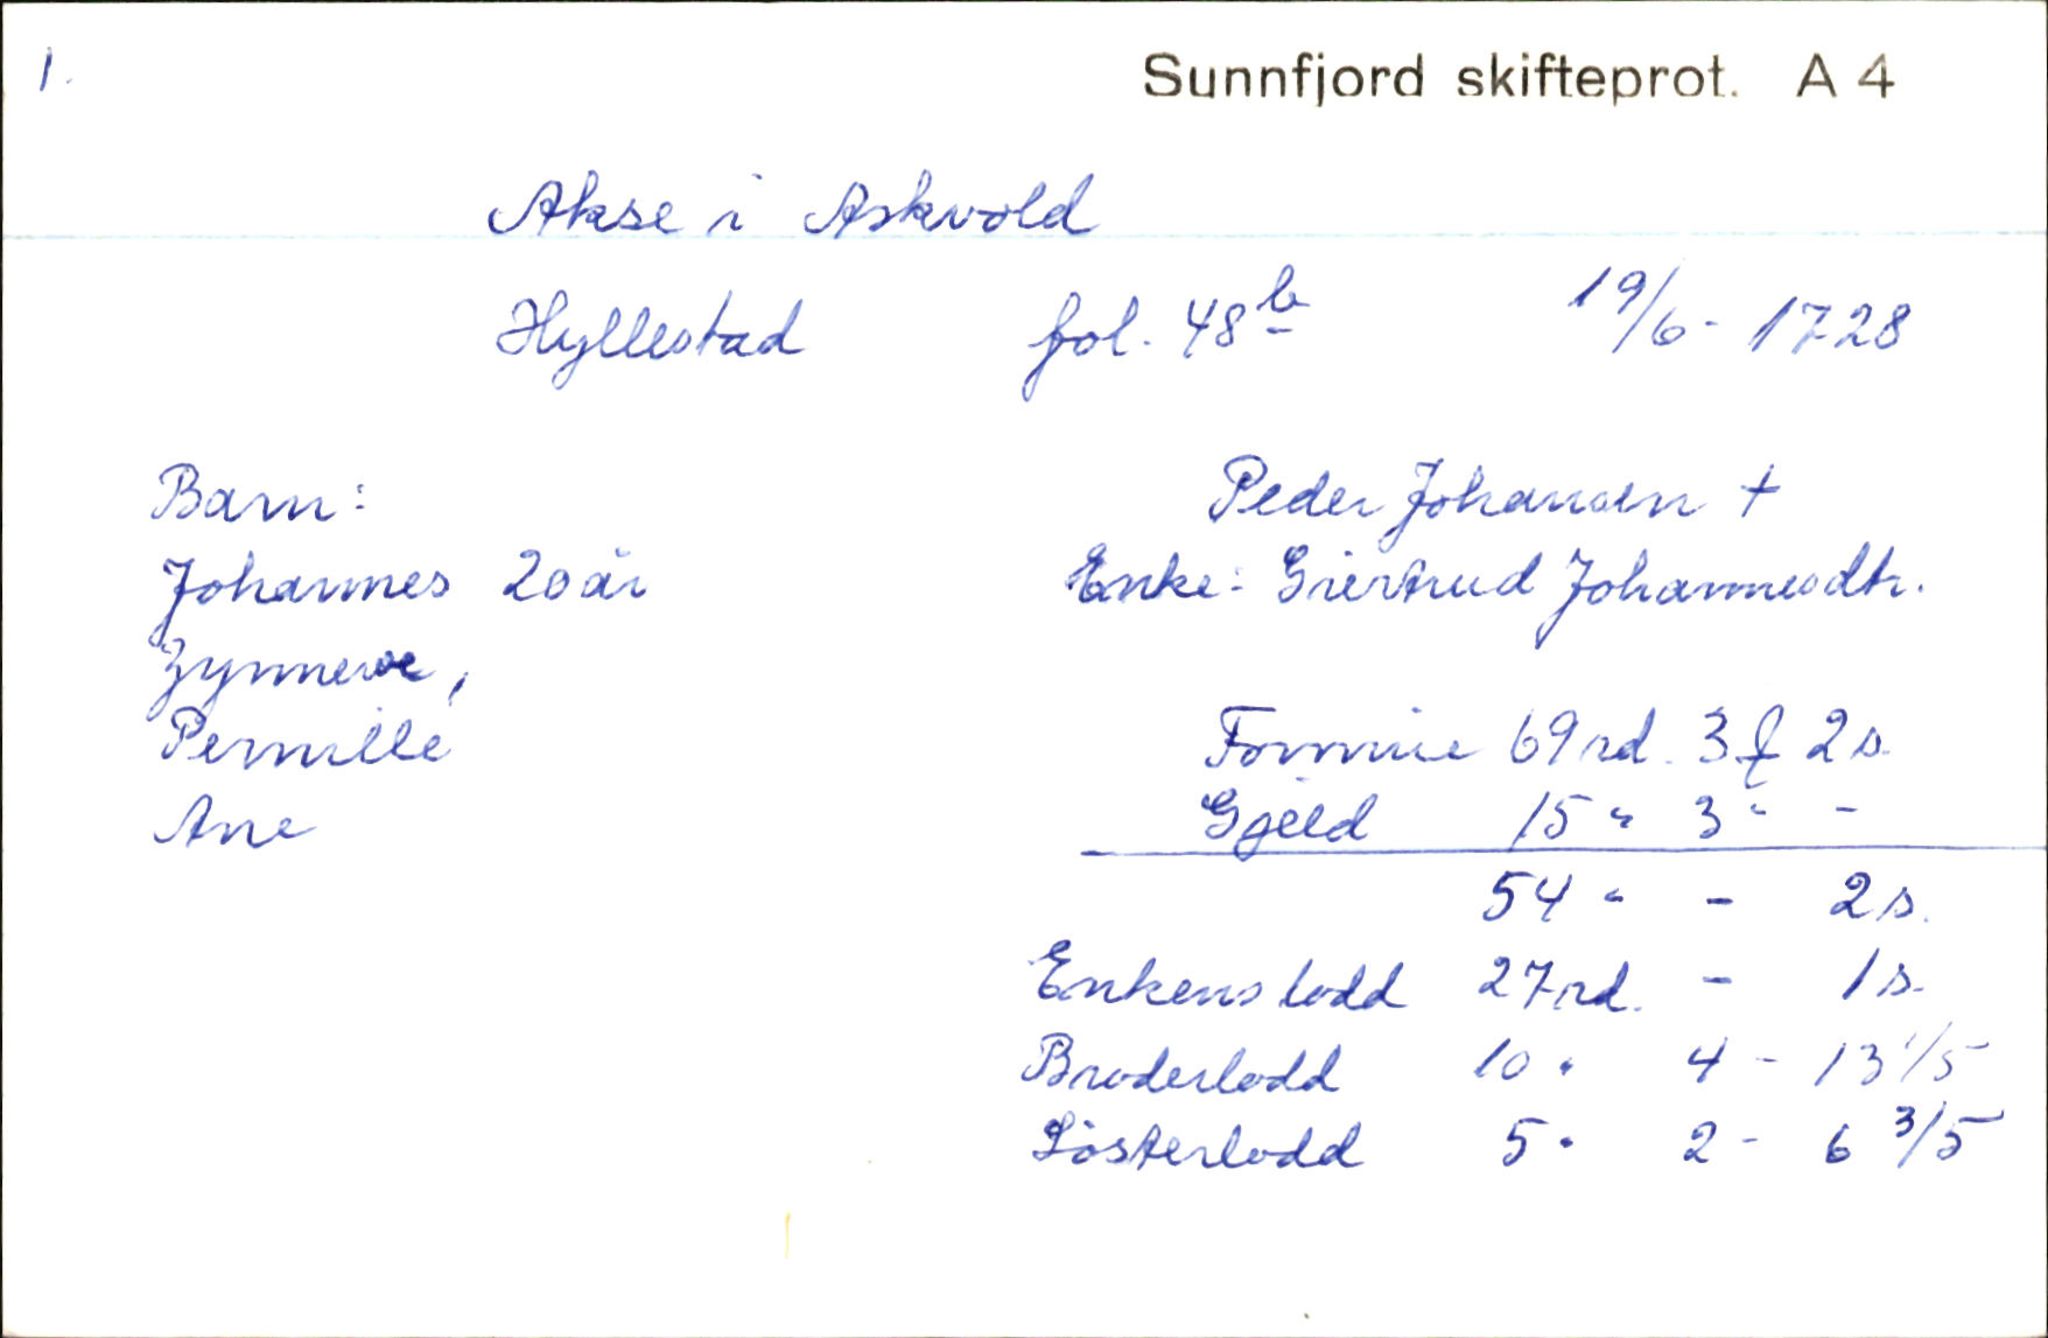 1.
Sunnfjord skifteprot. A 4
Akse i Askvold
Hyllestad fol. 48b 19/6 - 1728
Barn: Peder Johansen +
Johannes 20 år Enke: Giertrud Johannesdtr.
Zynnerve,
Pernille Formue 69 rd. 3 ƒ 2 s.
Ane Gjeld 15 " 3 " -
54 " - 2 s.
Enkens lodd 27 rd. - 1 s.
Broderlodd 10 " 4 - 13 1/5
Sösterlodd 5 " 2 - 6 3/5